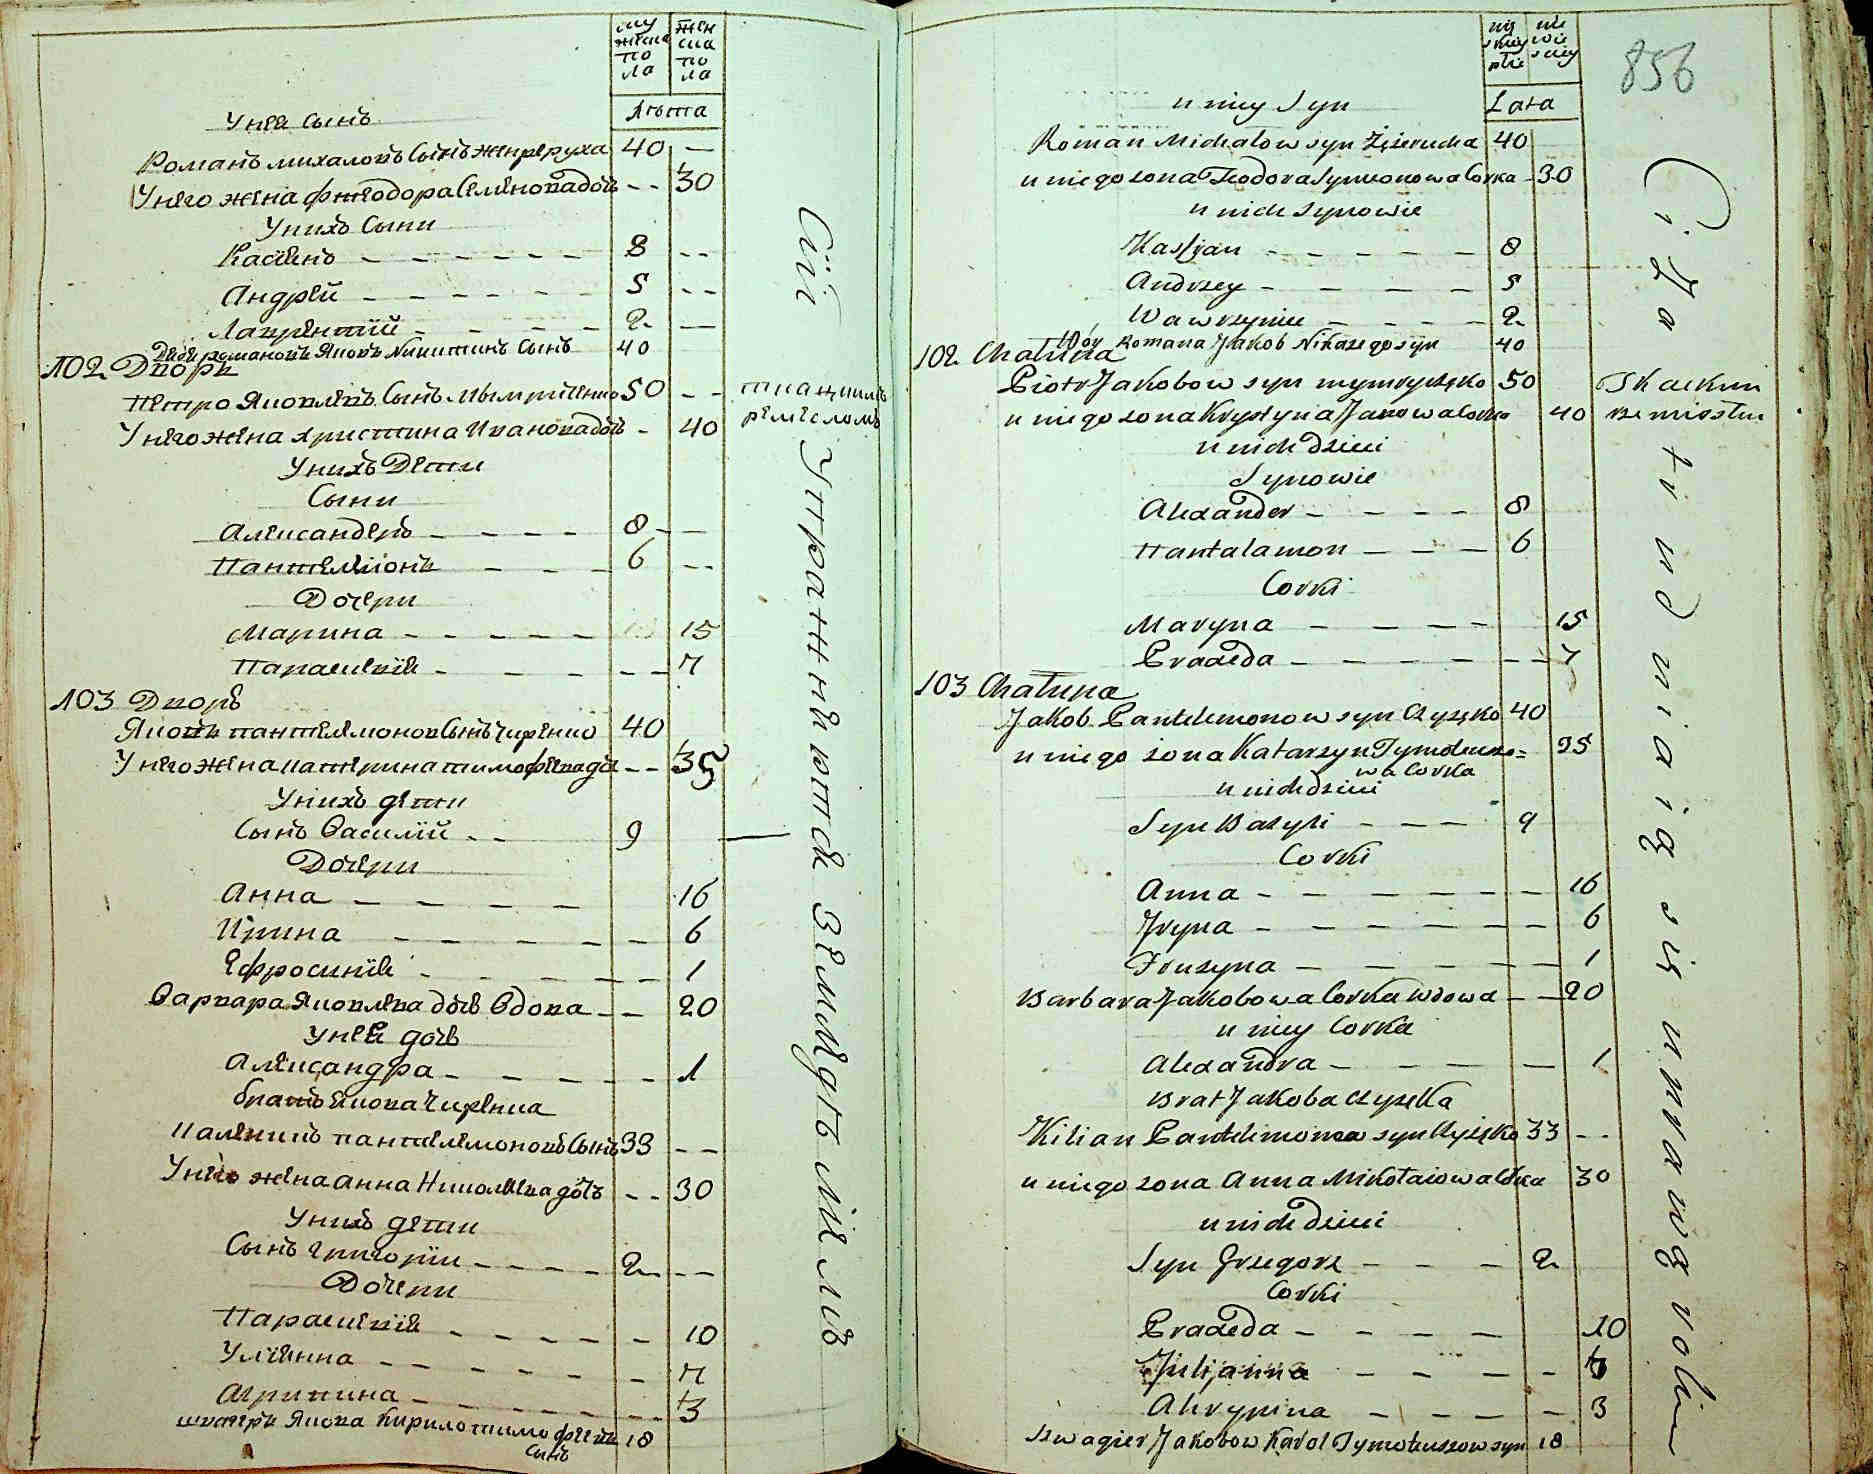 му
жеска
по
ла
жен
ска
по
ла
Лѣта
У нея сынъ
Романъ михаловъ Сынъ жнреруха 40 —
У него жена фтеодора Семенова дочь - - 30
У нихъ Сыни
Касіянъ - - - - - - 8 - -
Андрей - - - - - - 5 - -
Лаврентій - - - - - 2 - —
Дядя романовъ Яковъ Никитинъ Сынъ 40
102 Дворъ
Петро Яковлевъ Сынъ мымриченко 50 - - ткацкимъ
У него жена христина Иванова дочь - 40 ремесломъ
У нихъ Дети
Сыни
Александеръ - - - - 8 - —
Пантелмонъ - - - 6 - -
Дочери
Марина - - - - - 15
Параскевія - - - - - - 7
103 Дворъ
Яковъ пантелемоновъ Сынъ Чиренко 40
У него жена катерина тимофеева дч - - 35
У нихъ дети
Сынъ Василій - - 9 —
Дочери
Анна - - - - - 16
Ирина - - - - - - 6
Ефросинія - - - - - 1
Варвара Яковлева дочь Вдова - - 20
У неи дочь
Александра - - - - - 1
братъ Якова Чиренка
пантелемоновъ Сынъ 33 - -
У него жена анна Николаева дочь - - 30
У нихъ дети
Сынъ григорій - - - - 2 - -
Дочери
Параскевія - - - - - 10
Уліянна - - - - - - 7
Агрипина - - - - - - 3
шваґеръ Якова Кирило тимофеевъ 18
Сынъ
Сіи Упражняются Земледѣліемъ
mę
skiey
płci
nie
wie
sciey
Lata
856
u niey Syn
Roman Michałow syn Zęzerucha 40
u niego zona Teodora Symonowa Corka - 30
u nich Synowie
Kassjan - - - - - 8
Andrzey - - - - - 5
Wawrzyniec - - - - 2
Wóy Romana Jakob Nikasego syn 40
102 Chałupa
Piotr Jakobow syn mymryczęko 50 Tkackim
u niego zona Krystyna Janowa Corka 40 rzemiosłem
u nich dzieci
Synowie
Alexander - - - - 8
Pantalamon - - - 6
Corki
Maryna - - - - 15
Praxeda - - - - - - 7
103 Chałupa
Jakob Pantelemonow syn Czyręko 40
u niego żona Katarzyn Tymoteuszo= 35
wa Corka
u nich dzieci
Syn Bazyli - - - 9
Corki
Anna - - - - - - 16
Jryna - - - - - - 6
Fruzyna - - - - - 1
Barbara Jakobowa Corka Wdowa - - 20
u niey Corka
Alexandra - - - - - 1
Brat Jakoba czyręka
Kilian Pantelimonow syn Czyręko 33 - -
u niego zona Anna Mikołaiowa Corka 30
u nich Dzieci
Syn Grzegorz - - - 2
Corki
Praxeda - - - - 10
Juljanna - - - - - 7
Ahrypina - - - - - 3
Szwagier Jakobow Karol Tymoteuszow syn 18
Ci Zatrudniaią się uprawą roli